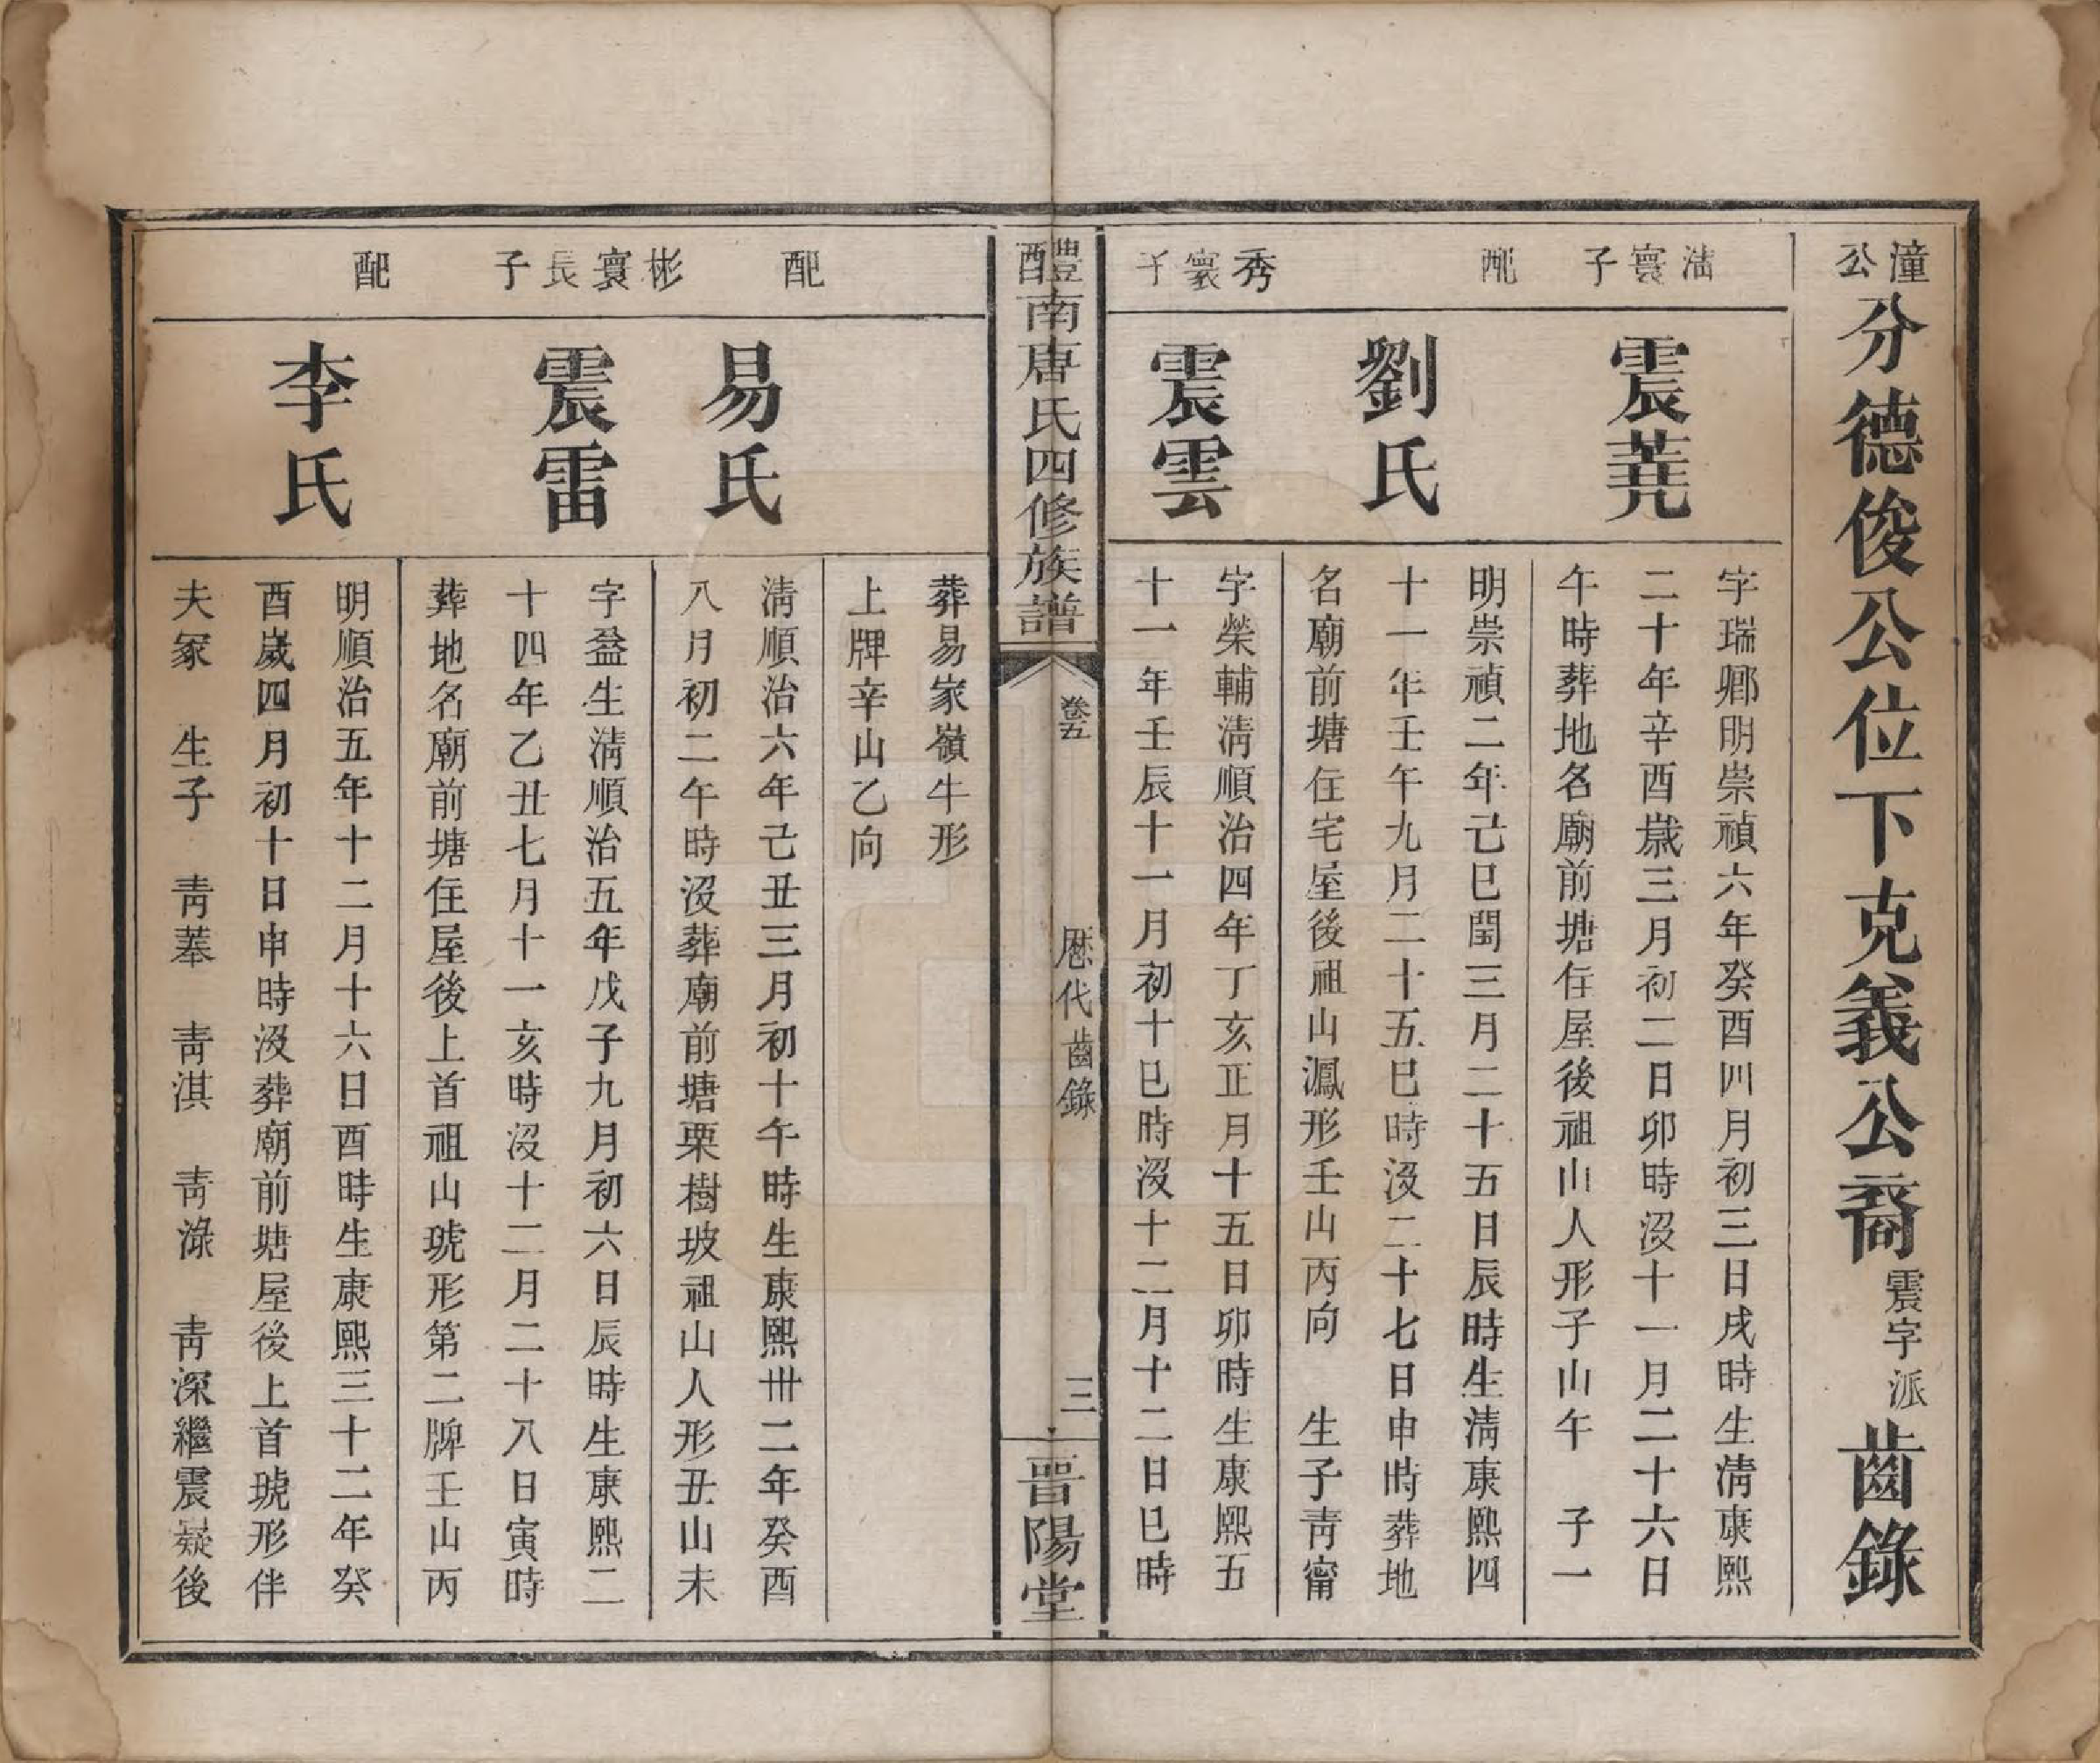 潼公分德俊公位下克義公裔震字派齒錄
寰子
震蕘
字瑞鄉明崇禎六年癸酉四月初三日戌時生淸康熙
二十年辛酉嵗三月初二日卯時沒十一月二十六日
午時葬地名廟前塘住屋後祖山人形子山午 子一
配
劉氏
明崇禎二年己巳閏三月二十五日辰時生淸康熙四
十一年壬午九月二十五巳時沒二十七日申時葬地
名廟前塘住宅屋後祖山鳳形壬山丙向 生子靑甯
秀寰子
震雲
字榮輔淸順治四年丁亥正月十五日卯時生康熙五
十一年壬辰十一月初十巳時沒十二月十二日巳時
醴南唐氏四修族譜
卷五
歷代齒錄
三
晉陽堂
葬易家嶺牛形
上牌辛山乙向
配
易氏
淸順治六年己丑三月初十午時生康熙卅二年癸酉
八月初二午時沒葬廟前塘栗樹坡祖山人形丑山未
彬寰長子
震雷
字益生淸順治五年戊子九月初六日辰時生康熙二
十四年乙丑七月十一亥時沒十二月二十八日寅時
葬地名廟前塘住屋後上首祖山琥形第二牌壬山丙
配
李氏
明順治五年十二月十六日酉時生康熙三十二年癸
酉嵗四月初十日申時沒葬廟前塘屋後上首琥形伴
夫冢 生子 靑葊 靑淇 靑淥 靑深繼震嶷後